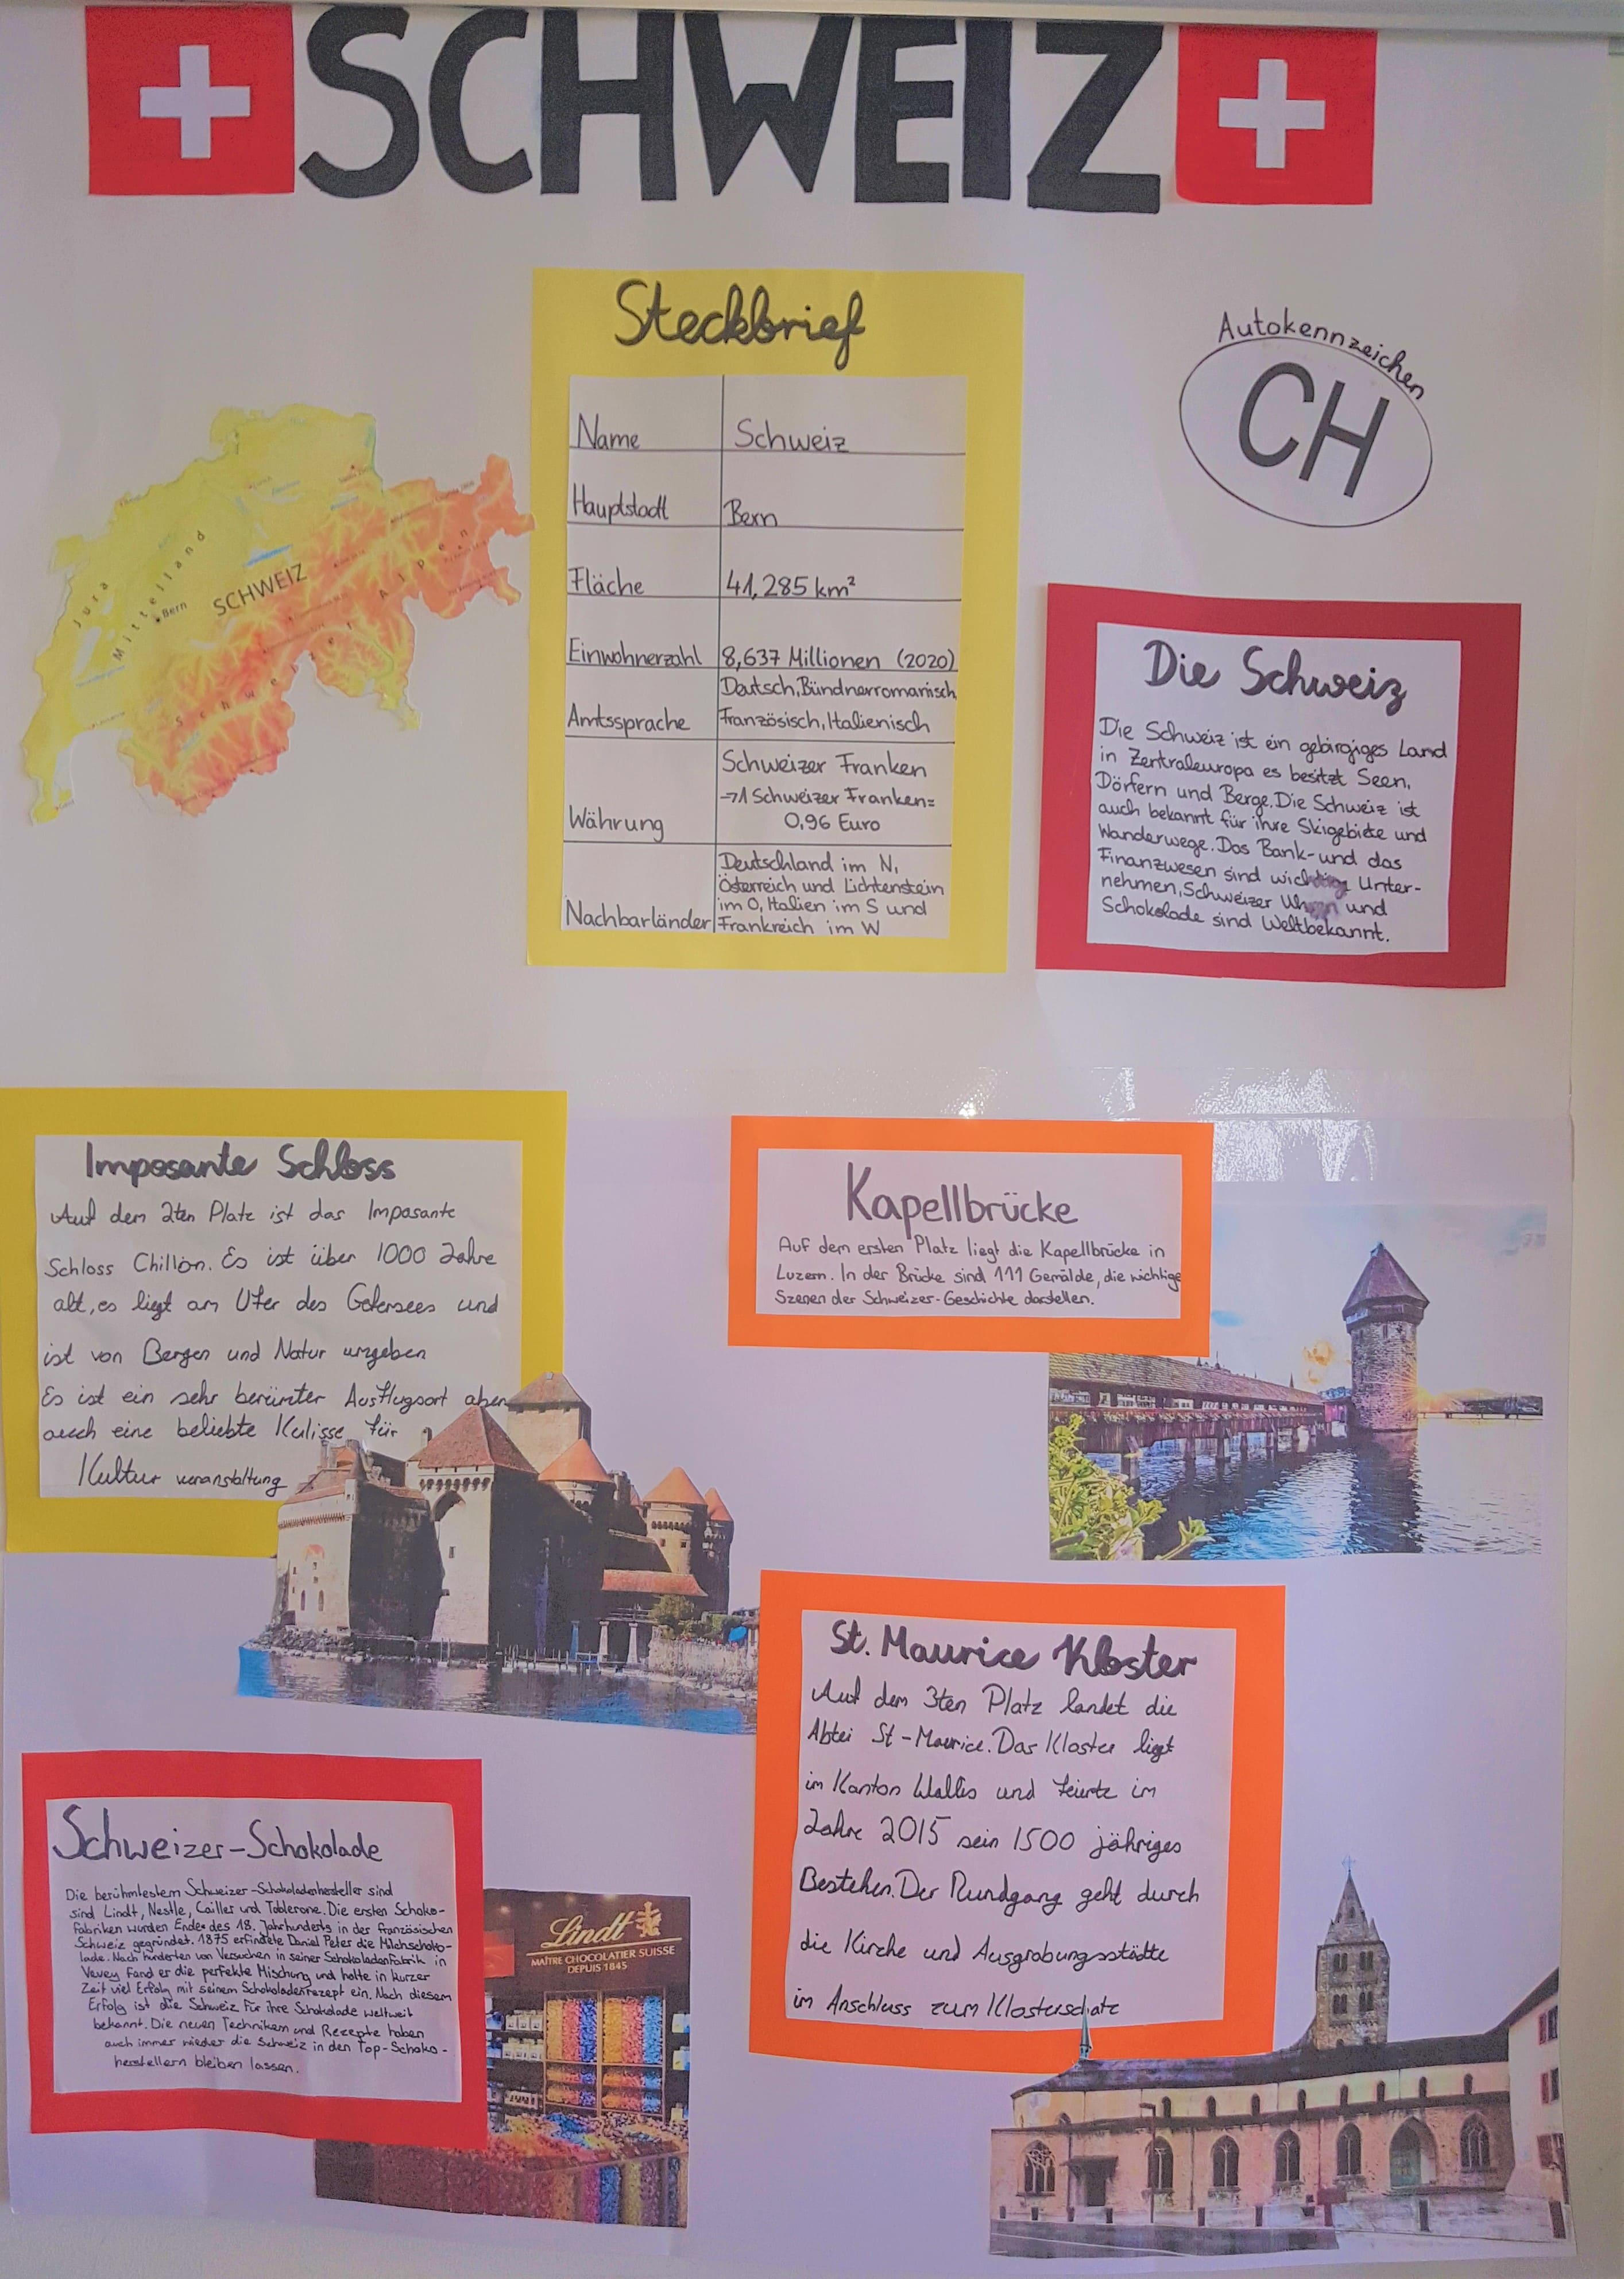 SCHWEIZ
Steckbrief
Name Schweiz
Hauptstadt Bern
Fläche 41,285 km²
Einwohnerzahl 8,637 Millionen (2020)
Amtssprache Deutsch, Bündnerromanisch,
Französisch, Italienisch
Währung Schweizer Franken
→1 Schweizer Franken=
0,96 Euro
Nachbarländer Deutschland im N,
Österreich und Lichtenstein
im O, Italien im S und
Frankreich im W
Autokennzeichen
CH
Jura
Mittelland
Bern
SCHWEIZ
Schweizer Alpen
Die Schweiz
Die Schweiz ist ein gebirgiges Land
in Zentraleuropa es besitzt Seen,
Dörfern und Berge. Die Schweiz ist
auch bekannt für ihre Skigebiete und
Wanderwege. Das Bank- und das
Finanzwesen sind Unter-
nehmen, Schweizer und
Schokolade sind Weltbekannt.
Imposante Schloss
Auf dem 2ten Platz ist das Imposante
Schloss Chillon. Es ist über 1000 Jahre
alt, es liegt am Ufer des Gefersees und
ist von Bergen und Natur umgeben
Es ist ein sehr berümter Ausflugsort aber
auch eine beliebte Kulisse für
Kultur veranstaltung
Kapellbrücke
Auf dem ersten Platz liegt die Kapellbrücke in
Luzern. In der Brücke sind 111 Gemälde, die wichtige
Szenen der Schweizer-Geschichte darstellen.
St. Maurice Kloster
Auf dem 3ten Platz landet die
Abtei St-Maurice. Das Kloster liegt
im Kanton Wallis und feierte im
Jahre 2015 sein 1500 jähriges
Bestehen. Der Rundgang geht durch
die Kirche und Ausgrabungsstätte
im Anschluss zum Klosterschatz
Schweizer-Schokolade
Die berühmtestem Schweizer-Schokoladenhersteller sind
sind Lindt, Nestle, Cailler und Toblerone. Die ersten Schoko-
fabriken wurden Ende des 18. Jahrhunderts in der französischen
Schweiz gegründet. 1875 erfindete Daniel Peter die Milchschoko-
lade. Nach hunderten von Versuchen in seiner Schokoladenfabrik in
Vevey fand er die perfekte Mischung und holte in kurzer
Zeit viel Erfolg mit seinem Schokoladenrezept ein. Nach diesem
Erfolg ist die Schweiz für ihre Schokolade weltweit
bekannt. Die neuen Techniken und Rezepte haben
auch immer wieder die Schweiz in den Top-Schoko-
herstellern bleiben lassen.
Lindt
MAÎTRE CHOCOLATIER SUISSE
DEPUIS 1845